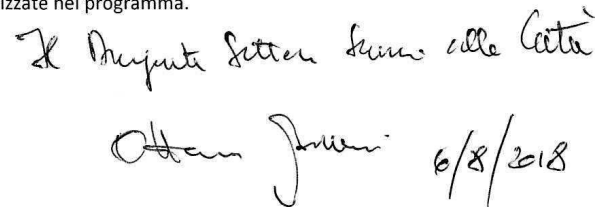 izzate nel programma.
Il Dirigente Settore Servizi alla Città
6/8/2018